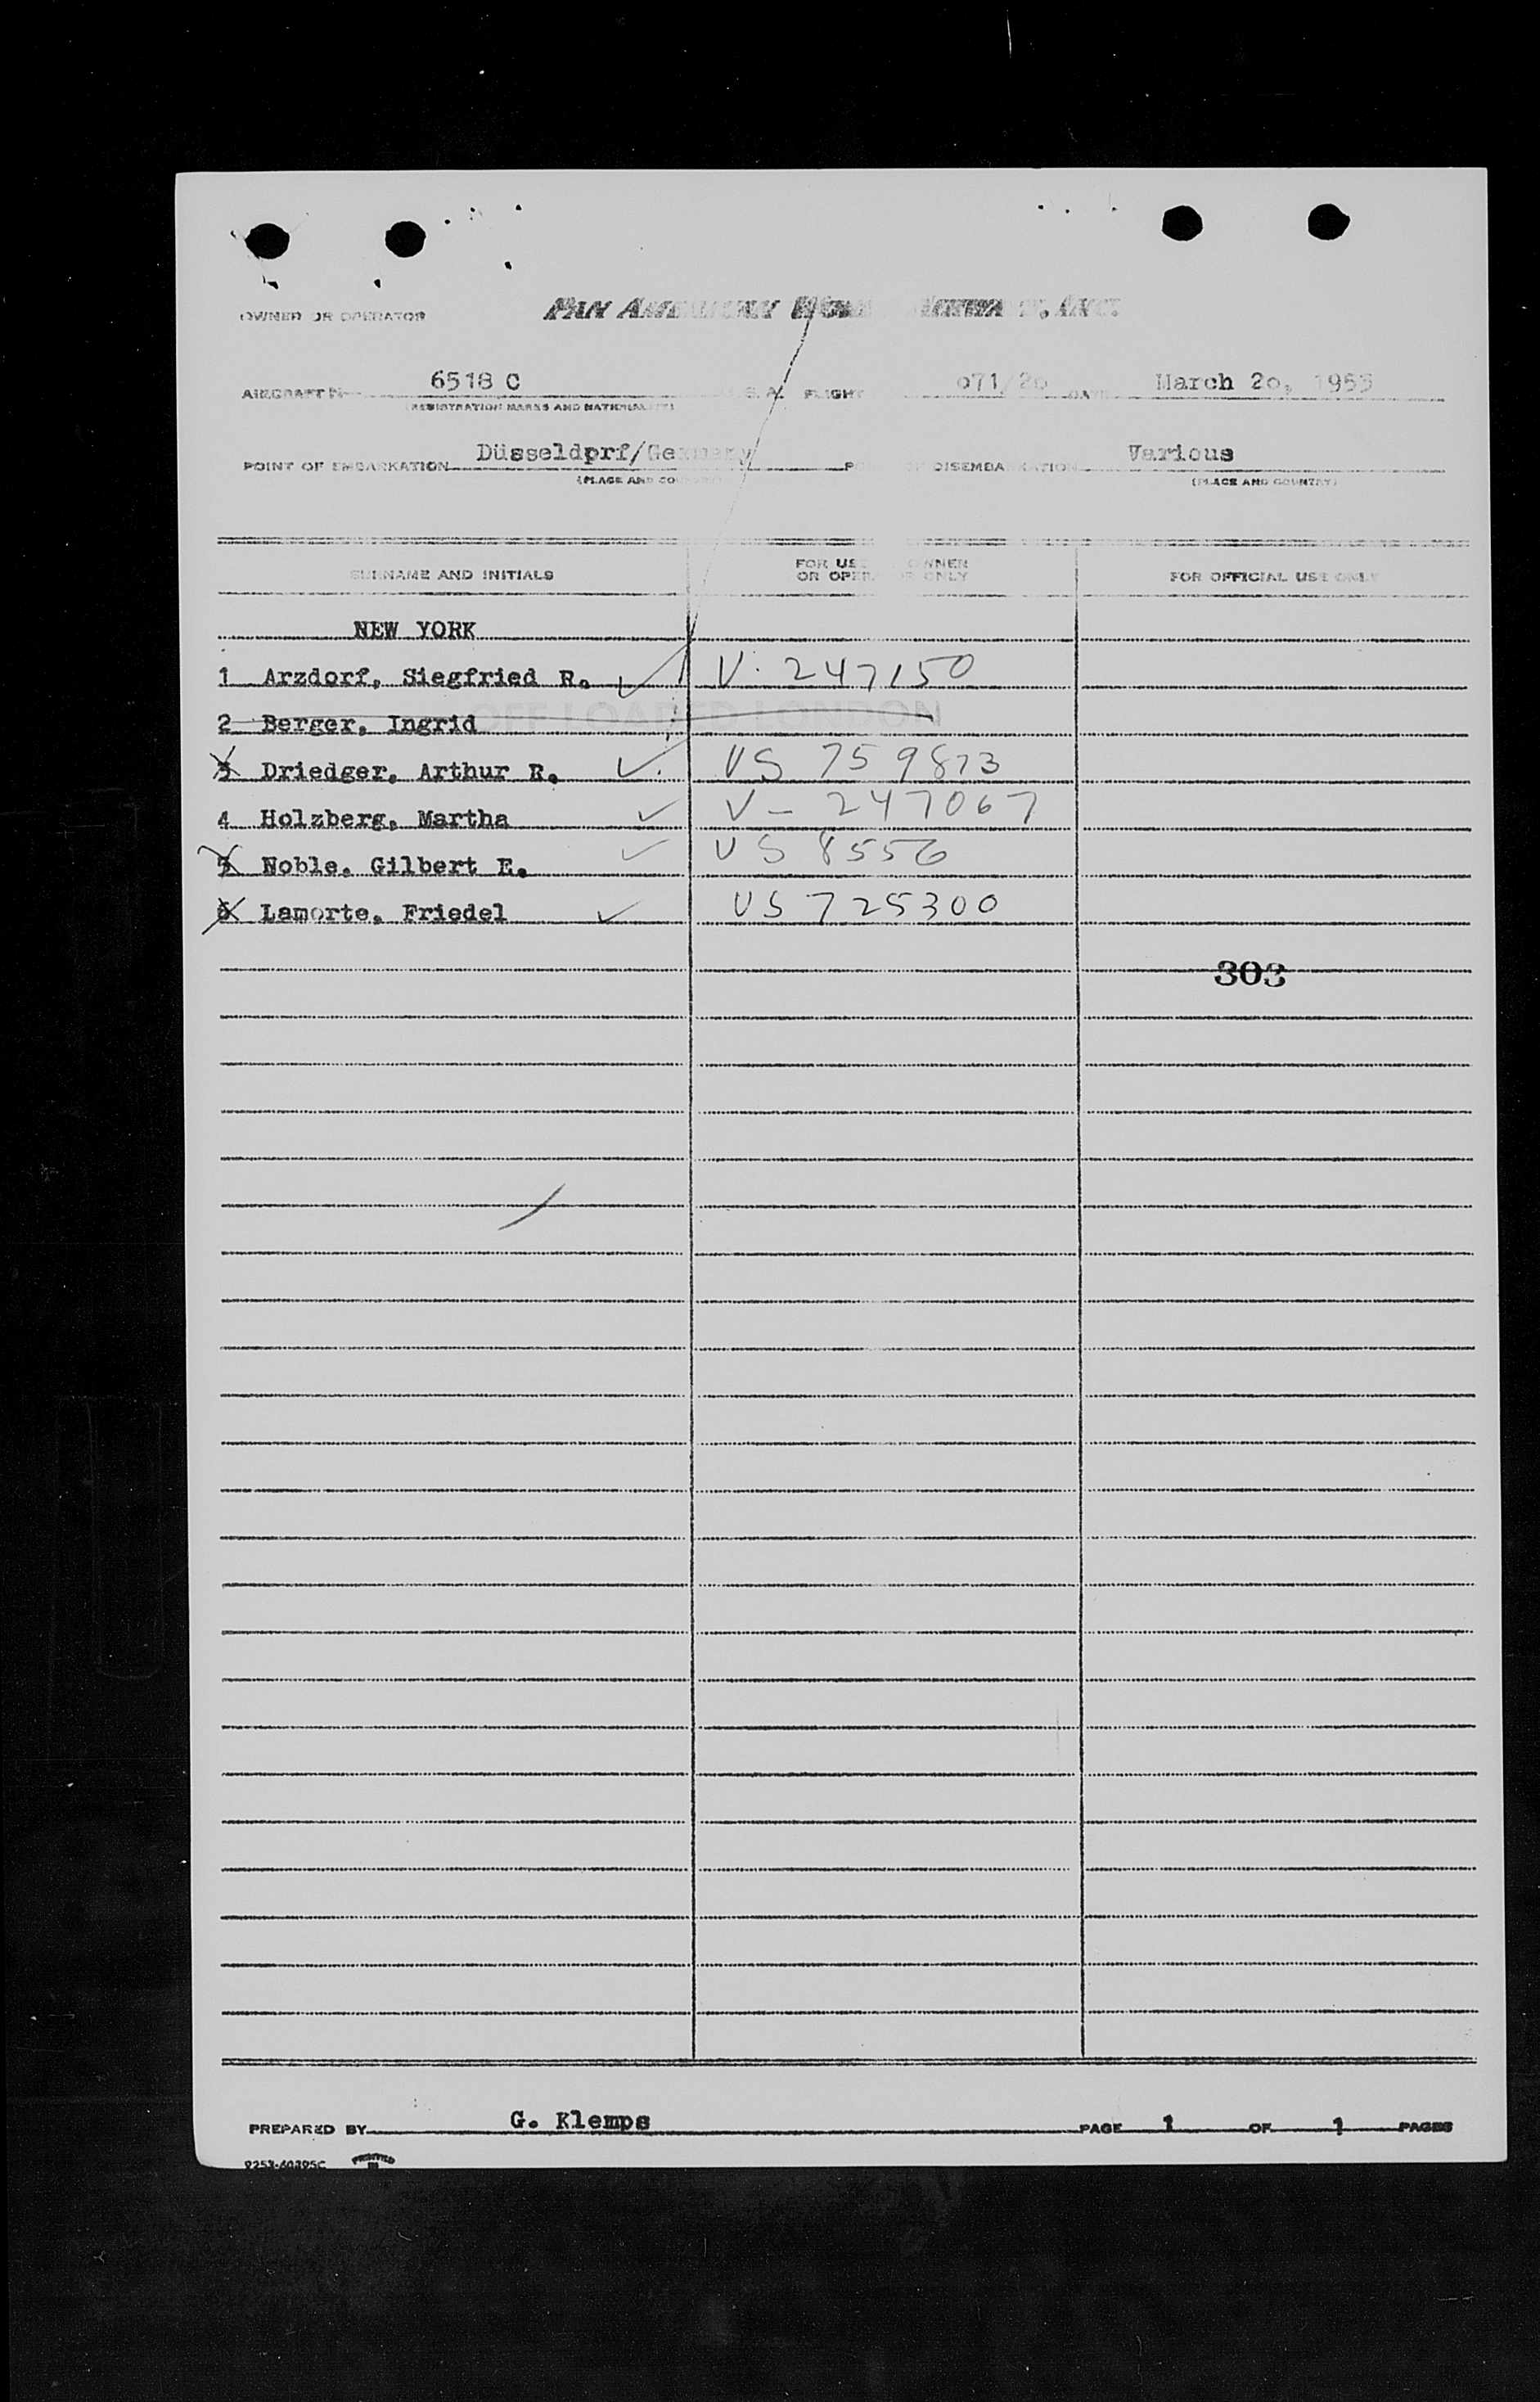 OWNER OR OPERATOR PAN AMERICAN WORLD AIRWAYS, INC.
AIRCRAFT 6518 C U.S.A. FLIGHT 071/20 DATE March 2o, 1955
(REGISTRATION MARKS AND NATIONALITY)
POINT OF EMBARKATION Düsseldprf/Germany POINT OF DISEMBARKATION Various
(PLACE AND COUNTRY) (PLACE AND COUNTRY)
SURNAME AND INITIALS FOR USE OF OWNER OR OPERATOR ONLY FOR OFFICIAL USE ONLY
NEW YORK
1 Arzdorf, Siegfried R. V. 247150
2 Berger, Ingrid OFF LOADED LONDON
3 Driedger, Arthur R. US 759873
4 Holzberg, Martha V - 247067
5 Noble, Gilbert E. US 8556
6 Lamorte, Friedel US 725300
303
PREPARED BY G. Klemps PAGE 1 OF 1 PAGES
9253-60395C PRINTED